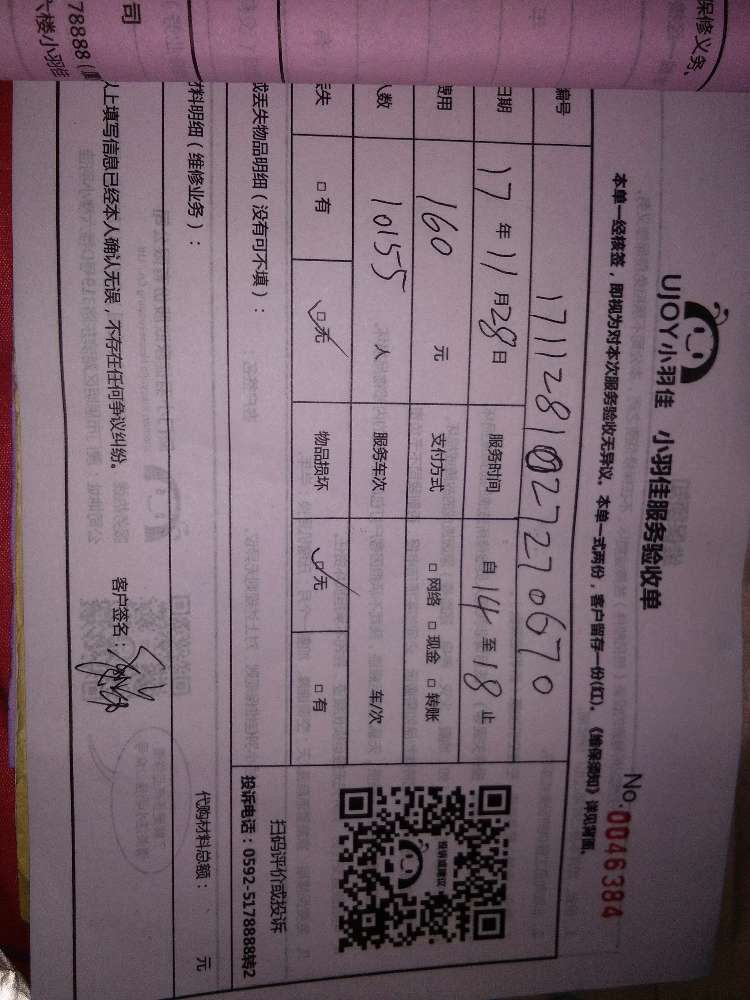 UJOY小羽佳 小羽佳服务验收单
No.0046384
本单一经核签，即视为对本次服务验收无异议。本单一式两份，客户留存一份(红)。《维保须知》详见背面。
编号
日期 17年11月28日 服务时间 自14至18止
费用 160 元 支付方式 □网络 □现金 □转账
人数 10155 人 服务车次 车/次
丢失 □有 □无 物品损坏 □无 □有
或丢失物品明细（没有可不填）：
投诉或建议
扫码评价或投诉
投诉电话：0592-5178888转2
材料明细（维修业务）：
代购材料总额： 元
以上填写信息已经本人确认无误，不存在任何争议纠纷。 客户签名：
保修义务、
司
78888（
六楼小羽佳